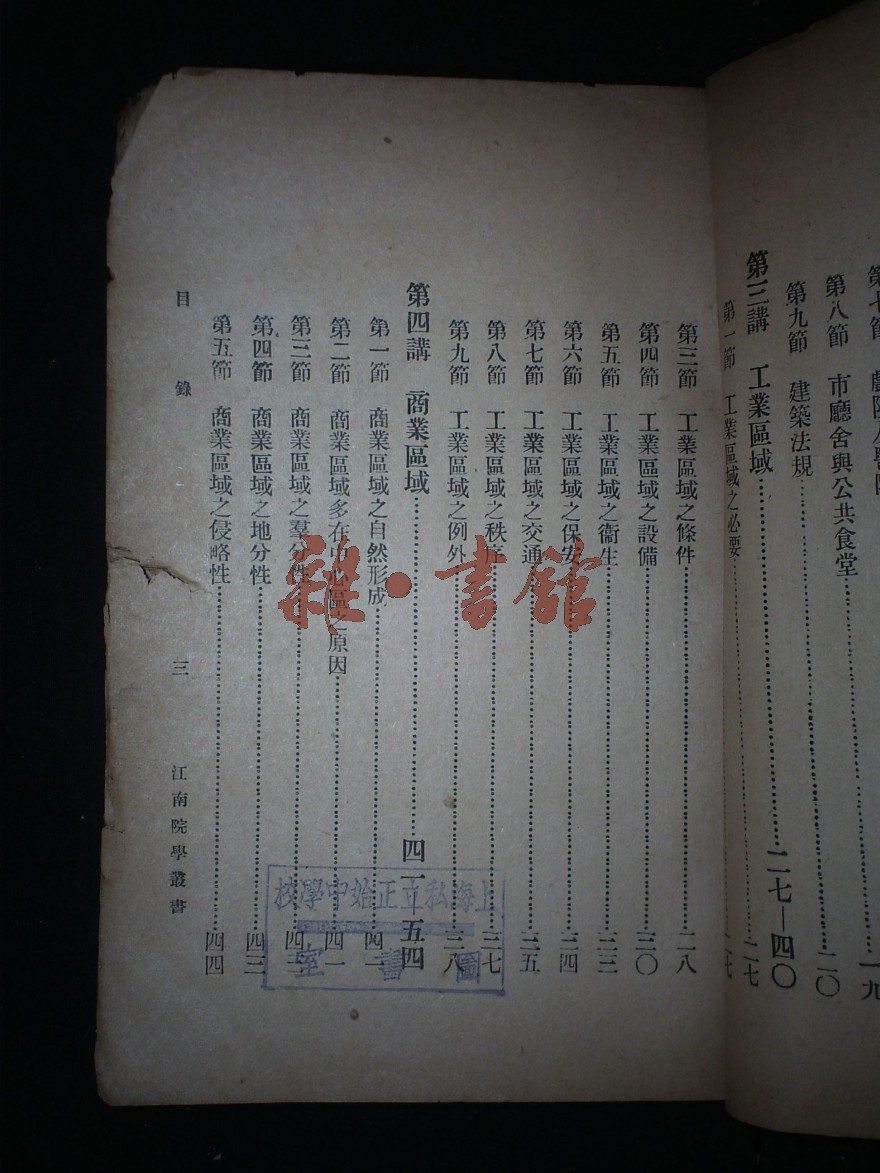 第八節 市廳舍與公共食堂……二〇
第九節 建築法規
第三講 工業區域……二七—四〇
第一節 工業區域之必要……二七
第三節 工業區域之條件……二八
第四節 工業區域之設備……三〇
第五節 工業區域之衞生……三三
第六節 工業區域之保安……三四
第七節 工業區域之交通……三五
第八節 工業區域之秩序……三七
第九節 工業區域之例外……三八
第四講 商業區域……四一—五四
第一節 商業區域之自然形成……四一
第二節 商業區域多在中心區之原因……四一
第三節 商業區域之羣分性……四三
第四節 商業區域之地分性……四三
第五節 商業區域之侵略性……四四
目錄
三
江南院學叢書
上海私立正始中學校
圖書室
雜·書館